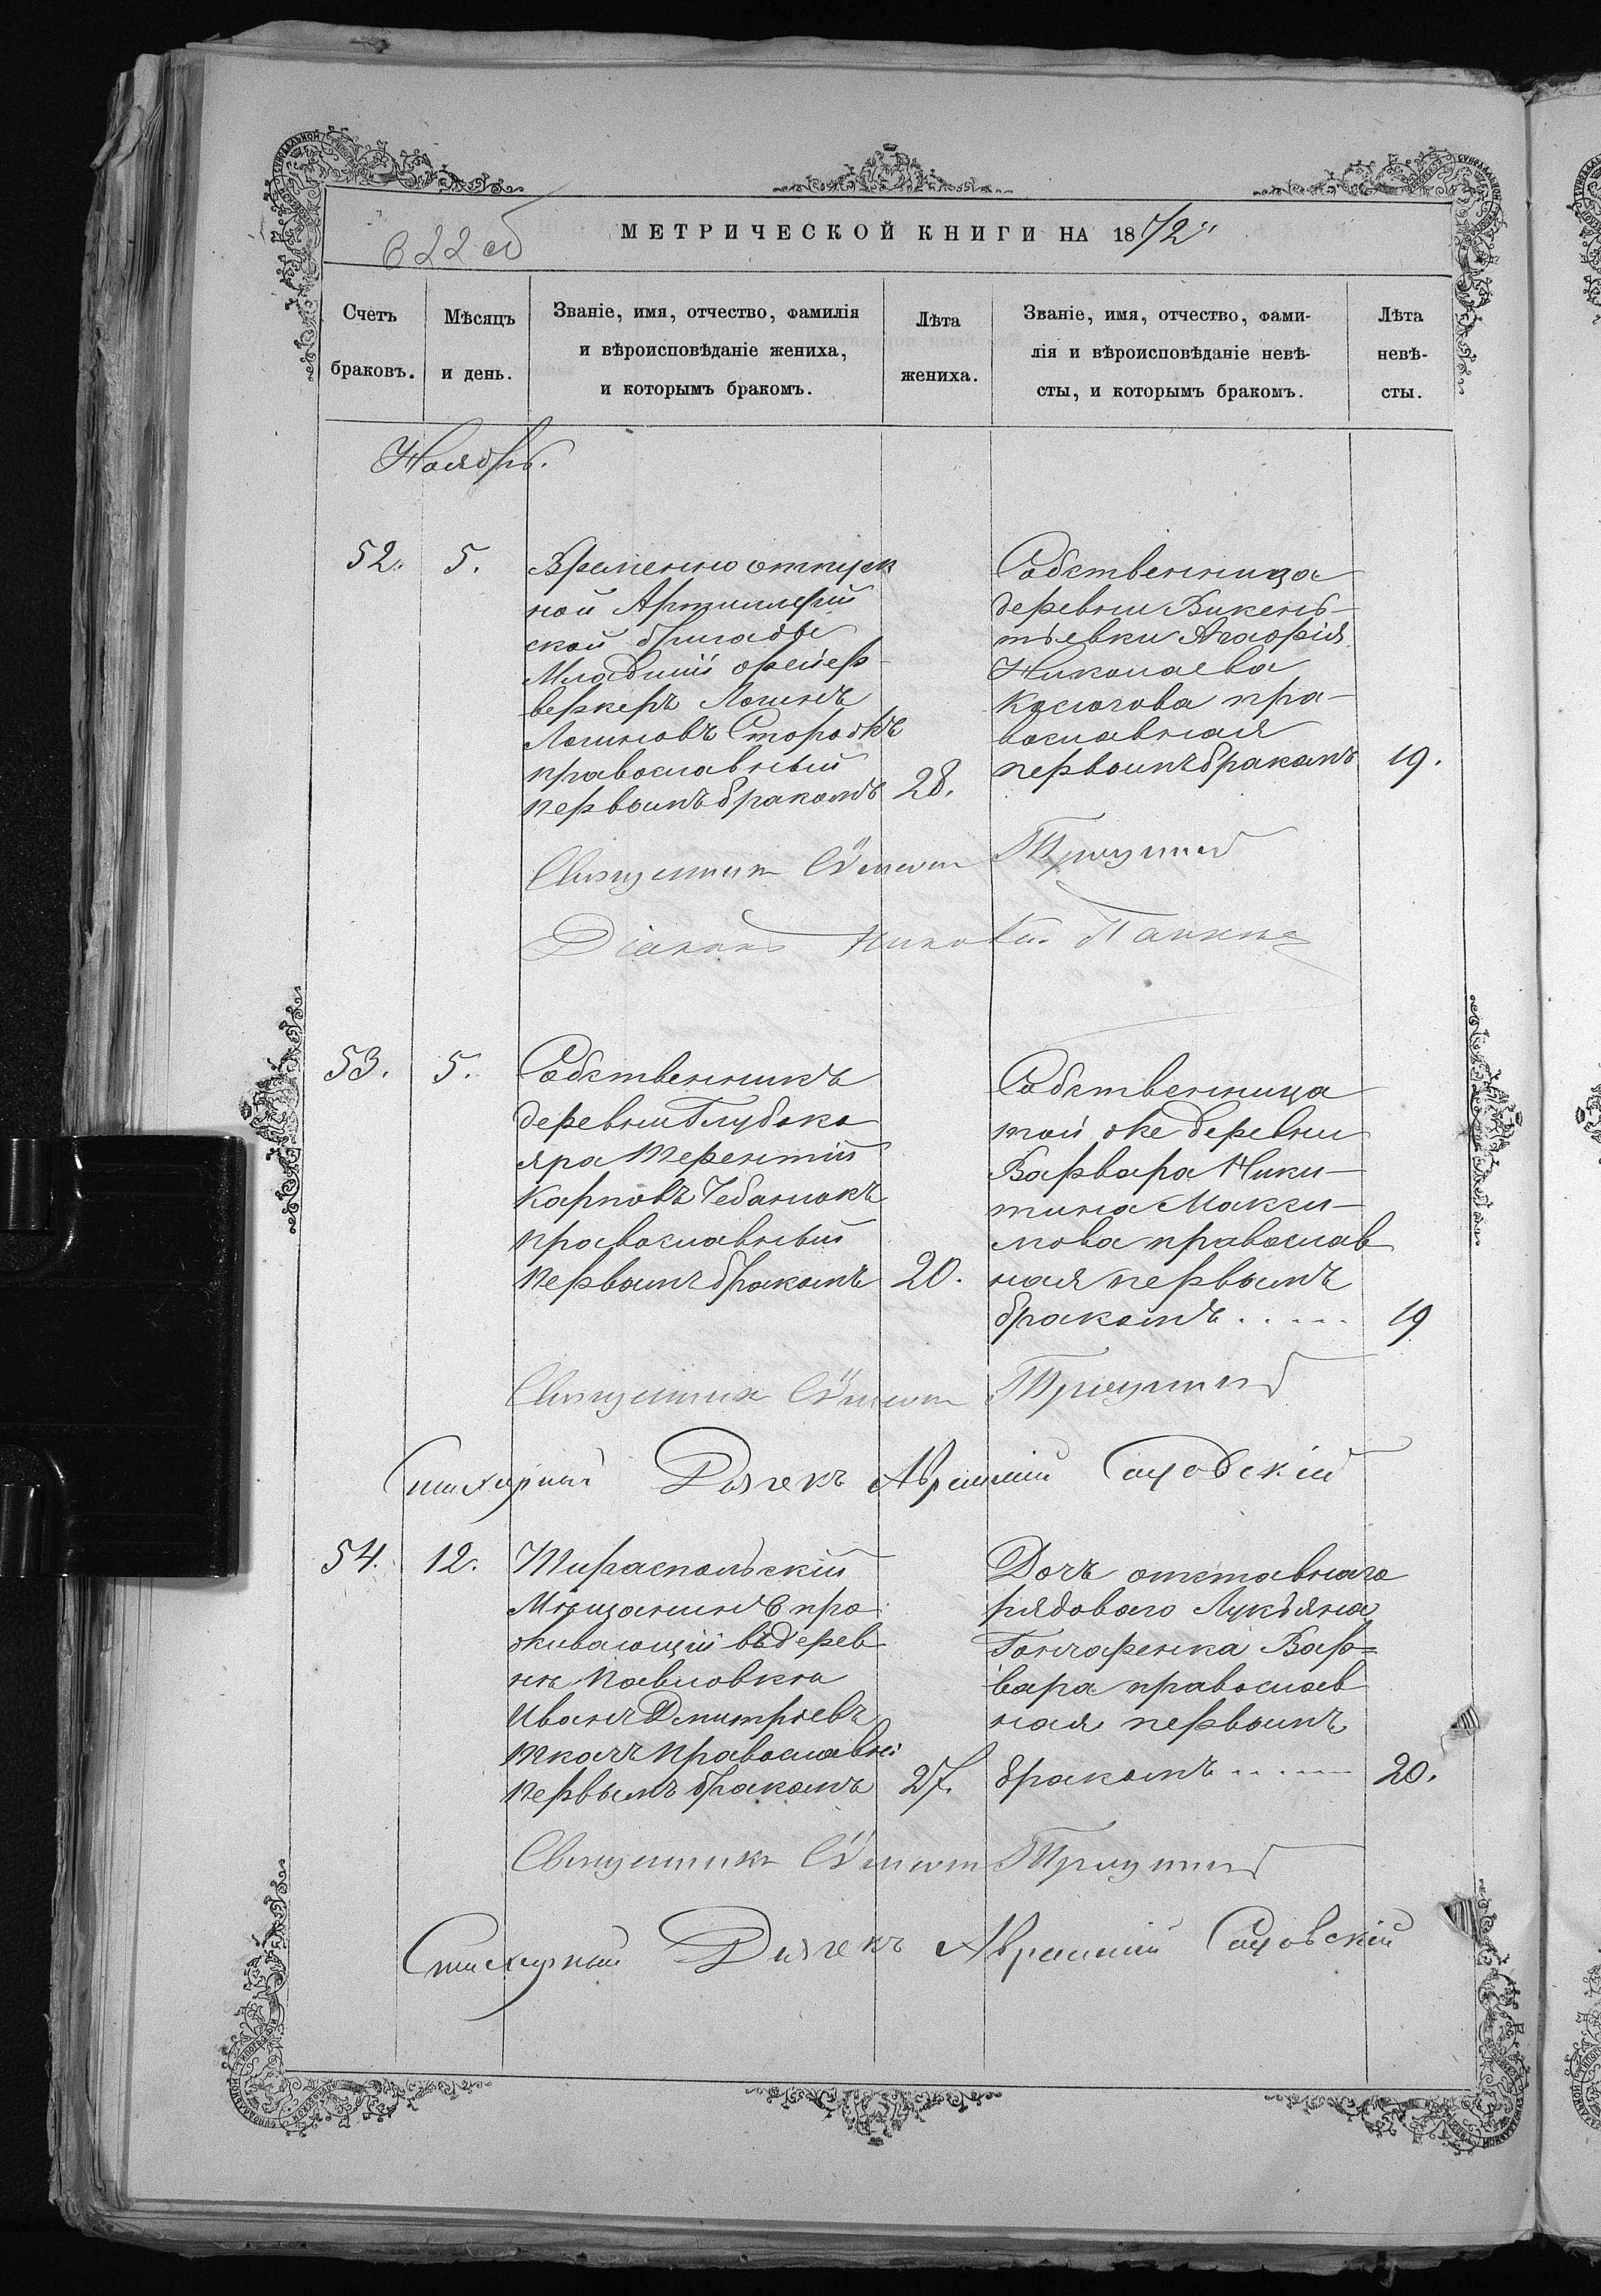 622 об
МЕТРИЧЕСКОЙ КНИГИ НА 1872
Счетъ браковъ.
Мѣсяцъ и день.
Званіе, имя, отчество, фамилія
и вѣроисповѣданіе жениха,
и которымъ бракомъ.
Лѣта жениха.
Званіе, имя, отчество, фами-
лія и вѣроисповѣданіе невѣ-
сты, и которымъ бракомъ.
Лѣта невѣ-
сты.
Ноябрь.
52. 5.
Временно отпуск
ной Артиллерій
ской бригады
Младшій фейер-
веркеръ Логинъ
Логиновъ
православный
первымъ бракомъ 28.
Собственница
деревни Викень-
тьевки
Николаева
пра-
вославная
первымъ бракомъ 19.
Священникъ
Діаконъ
53. 5.
Собственникъ
деревни Глубока
яра Терентій
Карповъ Чебанюкъ
православный
первымъ бракомъ 20.
Собственница
той же деревни
Варвара Ники-
тина Макси-
мова православ
ная первымъ
бракомъ..... 19
Священникъ
Стихарный Дьячекъ Садовскій
54. 12.
Тираспольскій
Мѣщанинъ про
живающій въ дерев
нѣ Павловкѣ
Иванъ Дмитріевъ
Ткачъ Православны
первымъ бракомъ 27.
Дочь отставнаго
рядоваго Лукьяна
Гончаренка Вар=
вара православ
ная первымъ
бракомъ..... 20.
Священникъ
Стихарный Дьячекъ Садовскій